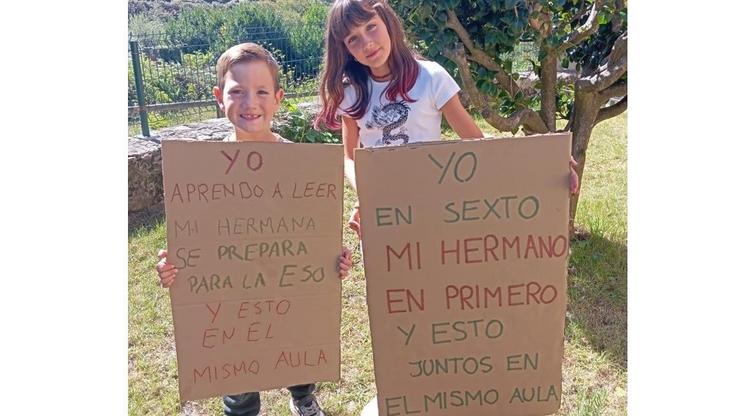 YO
APRENDO A LEER
MI HERMANA
SE PREPARA
PARA LA ESO
Y ESTO
EN EL
MISMO AULA
YO
EN SEXTO
MI HERMANO
EN PRIMERO
Y ESTO
JUNTOS EN
EL MISMO AULA